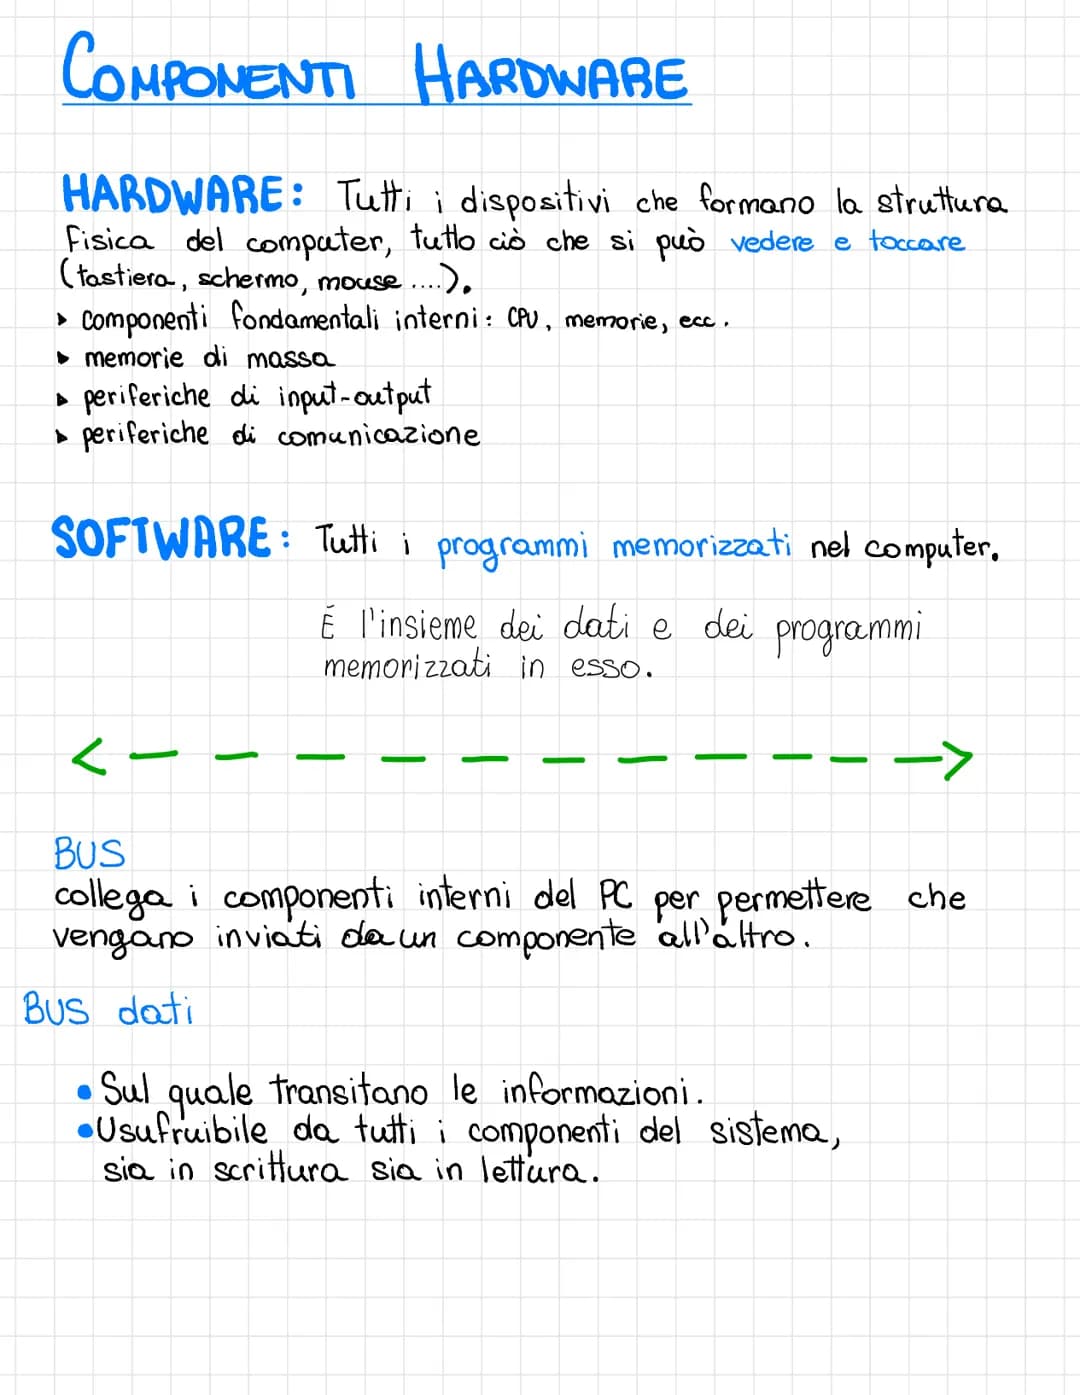 COMPONENTI HARDWARE
HARDWARE: Tutti i dispositivi che formano la struttura
fisica del computer, tutto ciò che si può vedere e toccare
(tastiera, schermo, mouse ....).
▸ componenti fondamentali interni: CPU, memorie, ecc.
▸ memorie di massa
▸ periferiche di input-output
▸ periferiche di comunicazione
SOFTWARE: Tutti i programmi memorizzati nel computer.
É l'insieme dei dati e dei programmi
memorizzati in esso.
BUS
collega i componenti interni del PC per permettere che
vengano inviati da un componente all'altro.
BUS dati
• Sul quale transitano le informazioni.
• Usufruibile da tutti i componenti del sistema,
sia in scrittura sia in lettura.